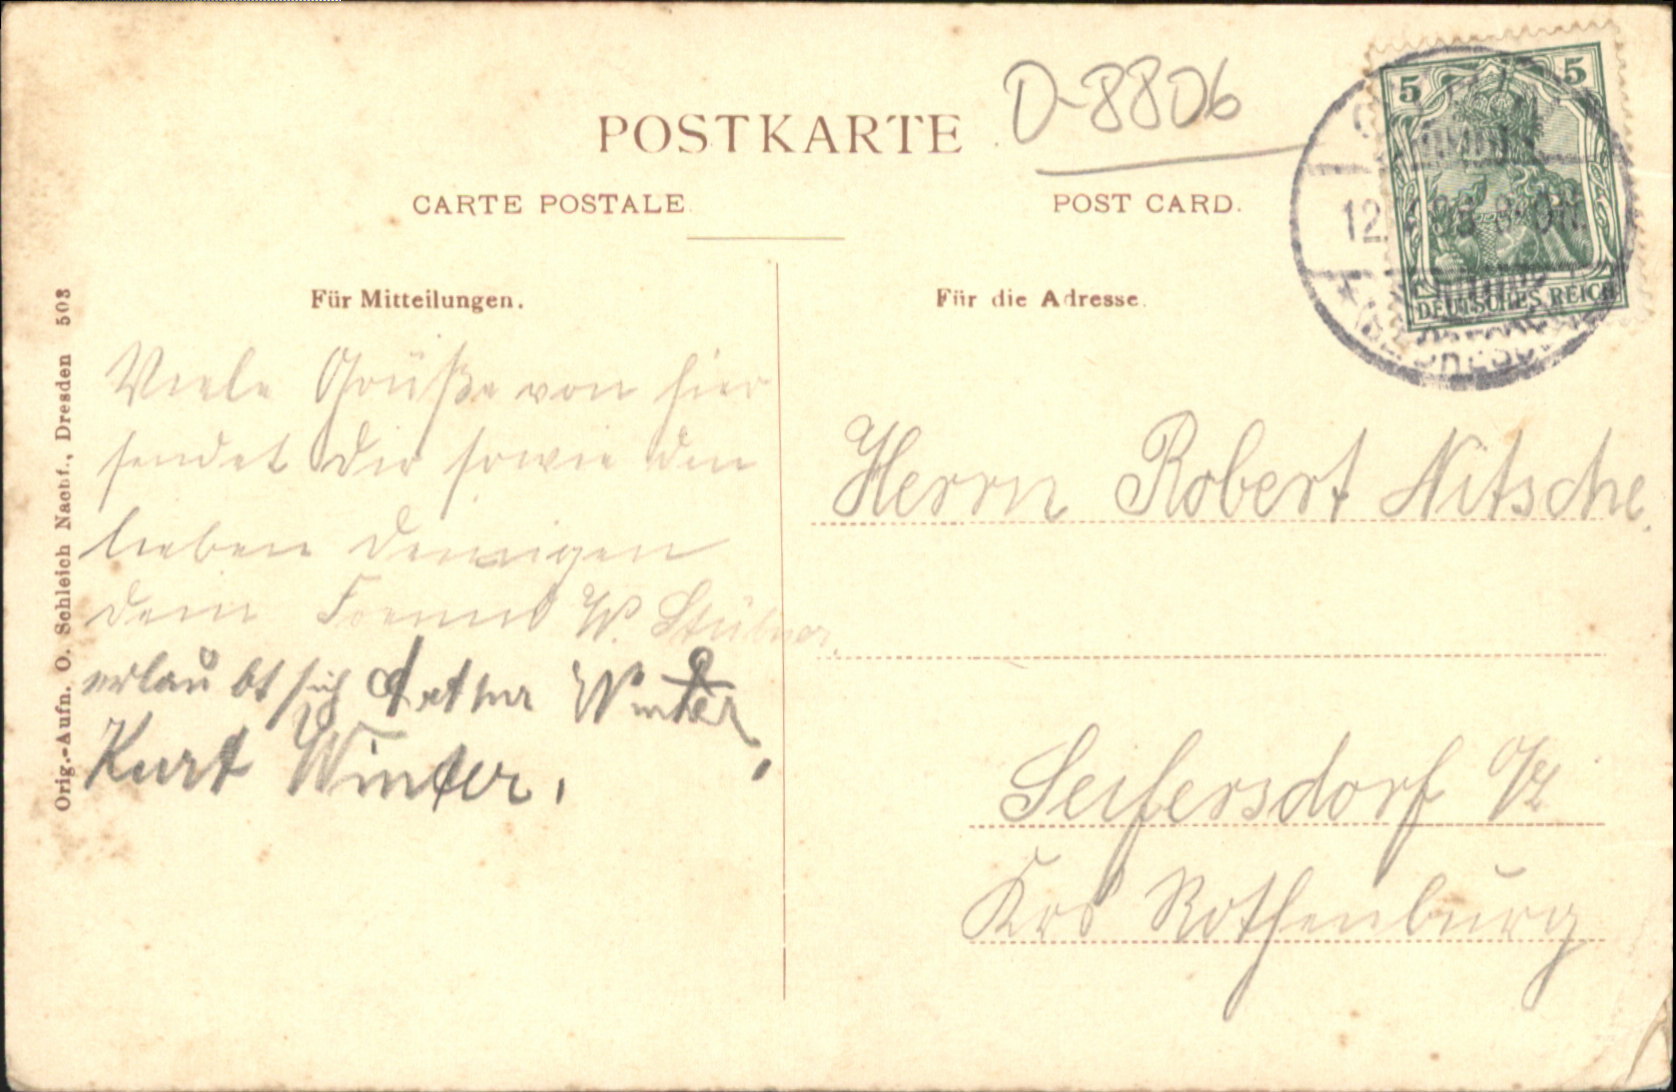 POSTKARTE
D-8806
CARTE POSTALE
POST CARD.
Für Mitteilungen.
Für die Adresse.
5 5
DEUTSCHES REICH
12.
Viele Grüße von hier
sendet Dir sowie den
lieben Deinigen
Dein Freund W. Stübner.
erlaubt sich Arthur Winter,
Kurt Winter.
Herrn Robert Nitsche.
Seifersdorf O/L
Krs Rothenburg
Orig.-Aufn. O. Schleich Nachf., Dresden 503